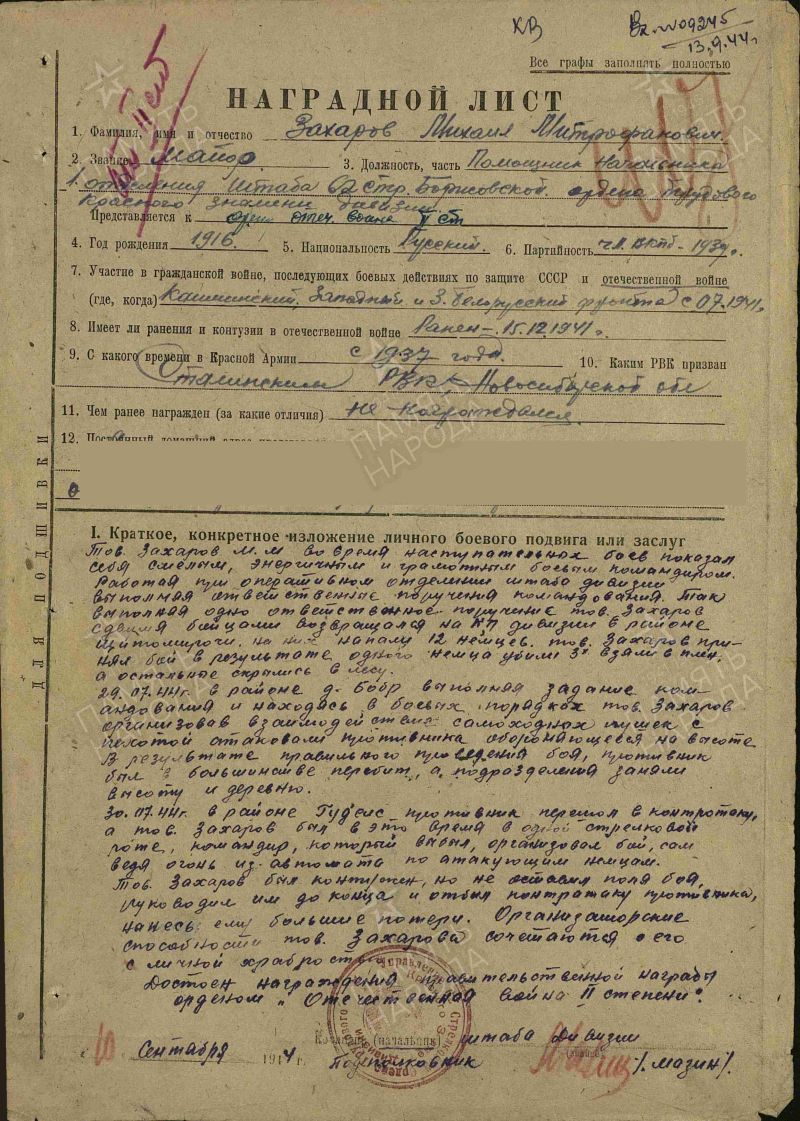 КВ
Вх. №09245
13.9.44г
Все графы заполнять полностью
НАГРАДНОЙ ЛИСТ
1. Фамилия, имя и отчество Захаров Михаил Митрофанович.
2. Звание Майор 3. Должность, часть Помощник начальника
1. отделения штаба 62 стр. Борисовской ордена Трудового
Красного знамени дивизии
Представляется к орден отеч. война II ст
4. Год рождения 1916. 5. Национальность Русский. 6. Партийность чл. ВКПб - 1939г.
7. Участие в гражданской войне, последующих боевых действиях по защите СССР и отечественной войне
(где, когда) Калининский, Западный и 3. Белорусский фронта с 07.1941г.
8. Имеет ли ранения и контузии в отечественной войне Ранен - 15.12.1941г.
9. С какого времени в Красной Армии с 1937 года. 10. Каким РВК призван
Сталинским РВК, Новосибирской обл
11. Чем ранее награжден (за какие отличия) не награждался.
12.
ДЛЯ ПОДШИВКИ
I. Краткое, конкретное изложение личного боевого подвига или заслуг
Тов. Захаров М.М во время наступательных боев показал
себя смелым, энергичным и грамотным боевым командиром.
Работая при оперативном отделении штаба дивизии
выполняя ответственные поручения командования. Так
выполняя одно ответственное поручение тов. Захаров
с двумя бойцами возвращался на КП дивизии в районе
на них напали 12 немцев. тов. Захаров при-
нял бой в результате одного немца убили 3х взяли в плен,
а остальное скрылись в лесу.
29.07.44г. в районе д. Бобр выполняя задание ком-
андования и находясь в боевых порядках тов. Захаров
организовав взаимодействие самоходных пушек с
пехотой атаковали противника обороняющегося на высоте
В результате правильного проведения боя, противник
был в большинстве перебит, а подразделения заняли
высоту и деревню.
30.07.44г. в районе противник перешол в контратаку,
а тов. Захаров был в это время в одной стрелковой
роте, командир, который выбыл, организовал бой, сам
ведя огонь из автомата по атакующим немцам.
Тов. Захаров был контужен, но не оставил поля боя,
руководил им до конца и отбил контратаку противника,
нанесь ему большие потери. Организаторские
способности тов. Захарова сочетаются с его
с личной храбростью
Достоен награждения правительственной награды
орденом „Отечественная война II степени".
(начальник) штаба Дивизии
10 Сентября 1944 г. Подполковник /Мазин/.